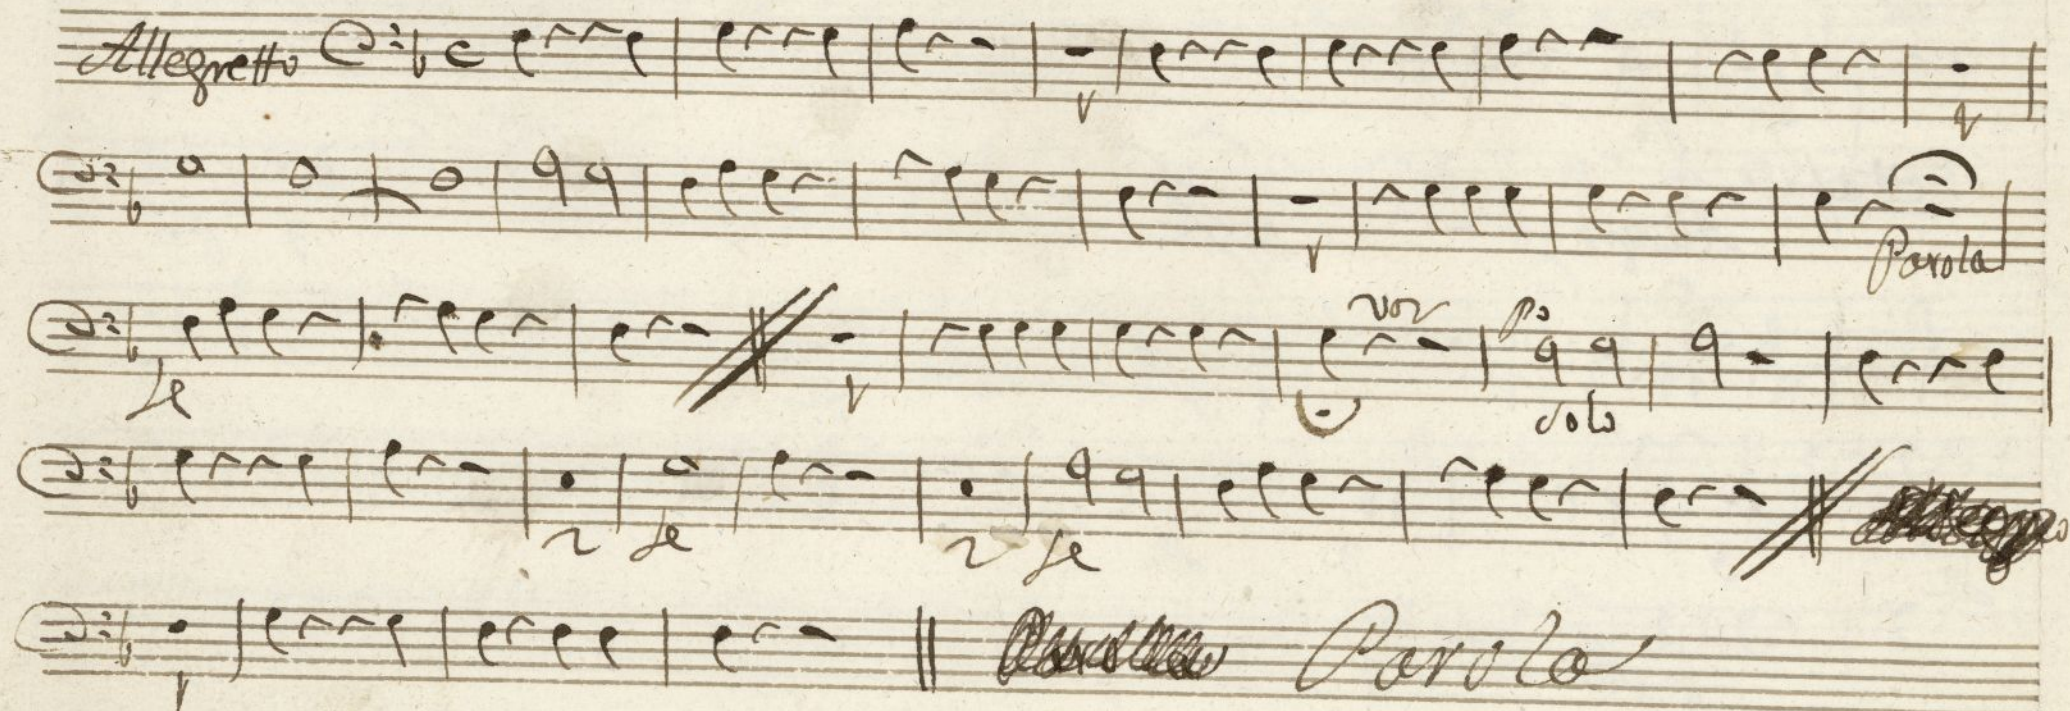 Allegretto
Parola
voz
po
solo
Parola